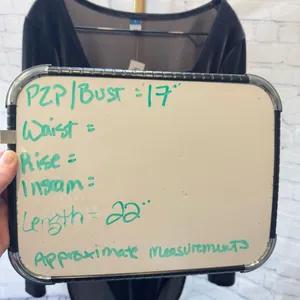 P2P/Bust = 17"
Waist =
Rise =
Inseam =
Length = 22"
Approximate Measurements